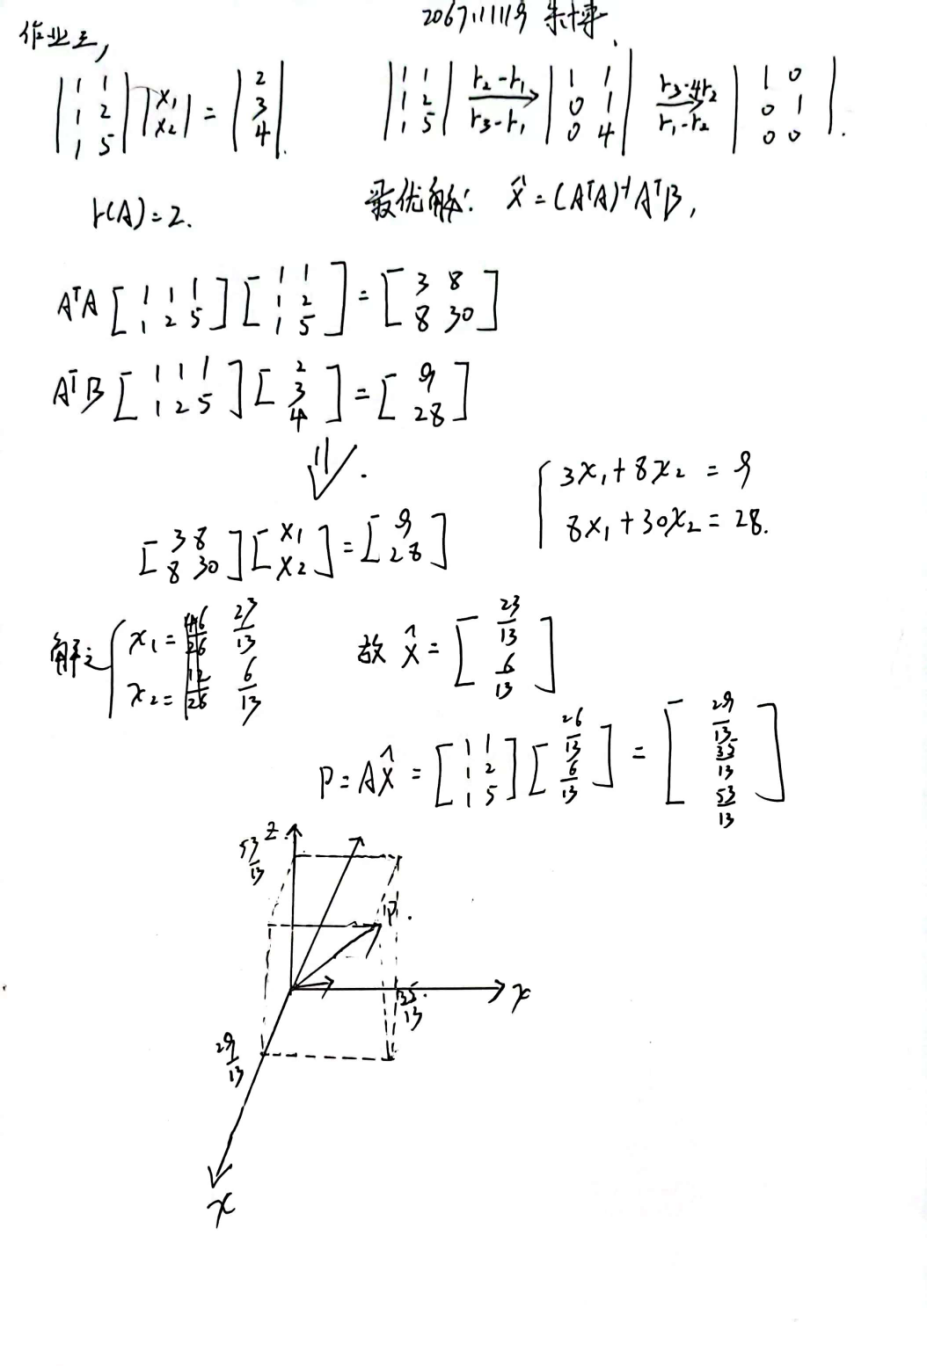 2067111119 朱博
作业三,
|1 1; 1 2; 1 5| |x₁; x₂| = |2; 3; 4|. |1 1; 1 2; 1 5| r₂-r₁ r₃-r₁ → |1 1; 0 1; 0 4| r₃-4r₂ r₁-r₂ → |1 0; 0 1; 0 0|.
r(A)=2. 最优解: x̂=(AᵀA)⁻¹AᵀB,
AᵀA [1 1 1; 1 2 5] [1 1; 1 2; 1 5] = [3 8; 8 30]
AᵀB [1 1 1; 1 2 5] [2; 3; 4] = [9; 28]
⇓.
{3x₁+8x₂=9
8x₁+30x₂=28.
[3 8; 8 30] [x₁; x₂] = [9; 28]
解之 {x₁= 46/26 23/13
x₂= 12/26 6/13
故 x̂ = [23/13; 6/13]
P=Ax̂ = [1 1; 1 2; 1 5] [26/13; 6/13] = [29/13; 35/13; 53/13]
53/13 z
P.
35/13 x
29/13
x